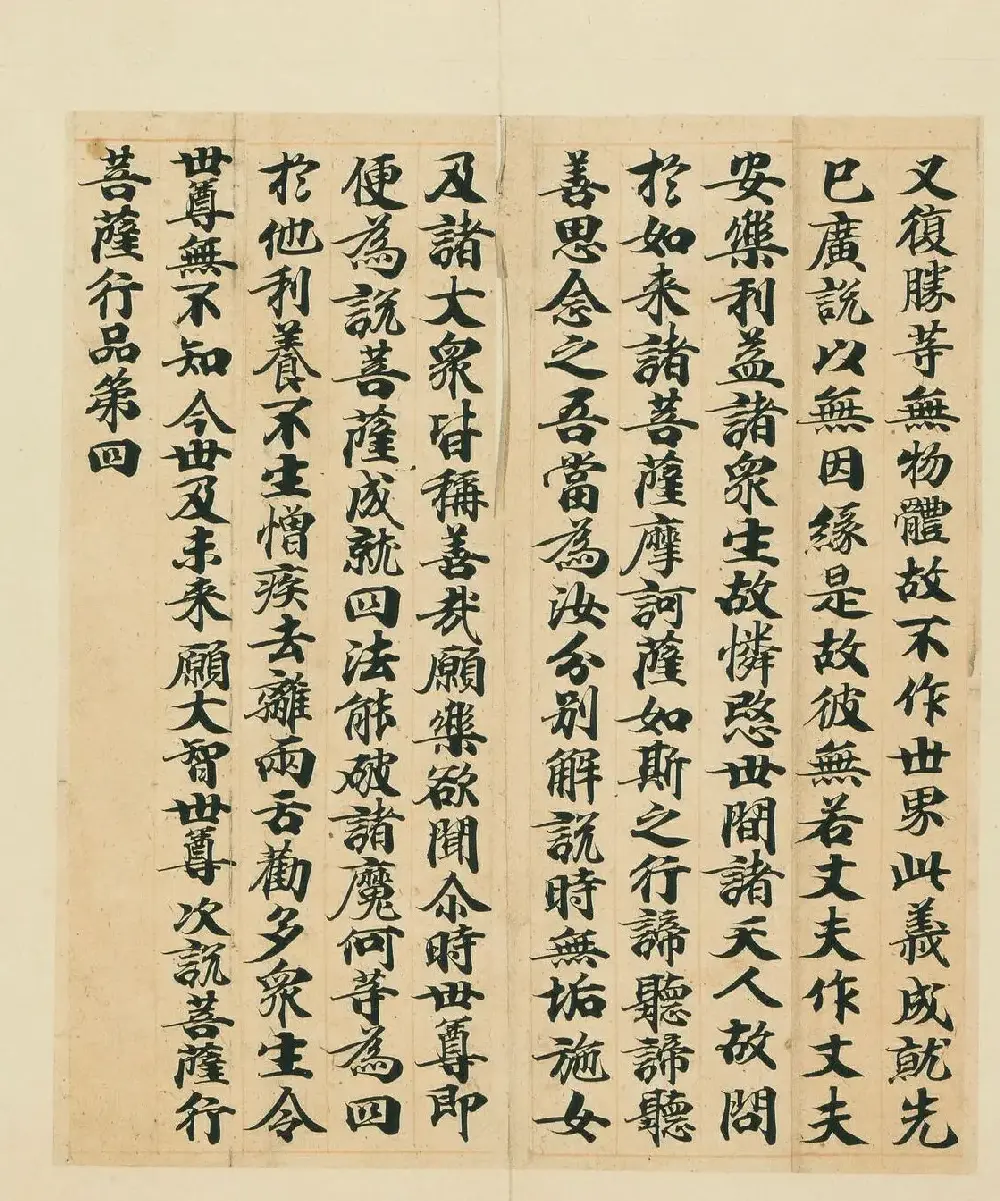 又復勝等無物體故不作世界此義成就先
已廣說以無因緣是故彼無若丈夫作丈夫
安樂利益諸眾生故憐愍世間諸天人故問
於如来諸菩薩摩訶薩如斯之行諦聽諦聽
善思念之吾當為汝分別解說時無垢施女
及諸大眾皆稱善哉願樂欲聞尒時世尊即
便為說菩薩成就四法能破諸魔何等為四
於他利養不生憎疾去離兩舌勸多眾生令
世尊無不知今世及未来願大智世尊次說菩薩行
菩薩行品第四